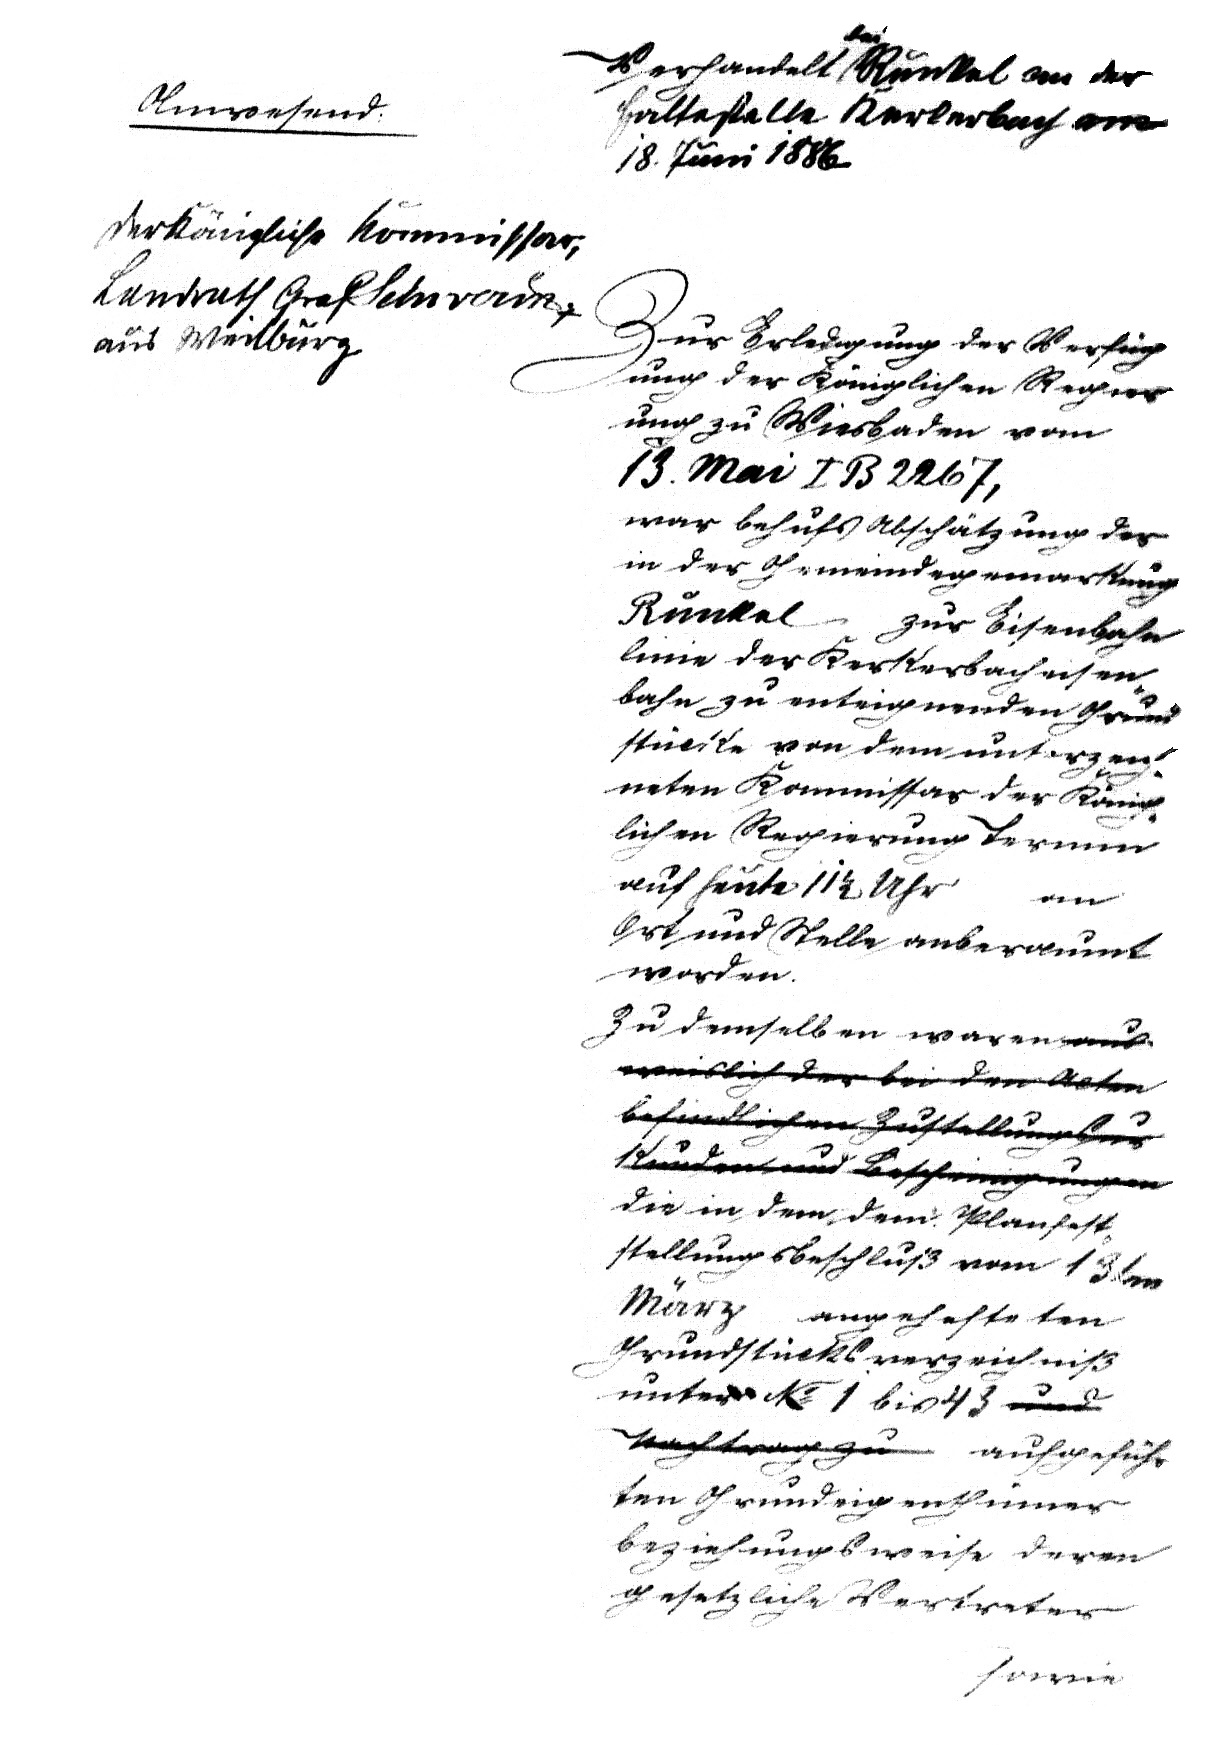 Anwesend:
der Königliche Kommissar,
Landrath Graf Schwerin
aus Weilburg
bei
Verhandelt Runkel an der
Haltestelle Kerkerbach am
18. Juni 1886
Zur Erledigung der Verfüg
ung der Königlichen Regier
ung zu Wiesbaden vom
13. Mai I B 2267,
war behufs Abschätzung der
in der Gemeindegemarkung
Runkel zur Eisenbahn
linie der Kerkerbacheisen
bahn zu enteignenden Grund
stücke von dem unterzeich
neten Kommissar der König
lichen Regierung Termin
auf heute 11½ Uhr an
Ort und Stelle anberaumt
worden.
Zu demselben waren aus
weislich der bei den Acten
befindlichen Zustellungsur
kunden und Bescheinigungen
die in dem, dem Planfest
stellungsbeschluß vom 13ten
März angehefteten
Grundstücksverzeichniß
unter No 1 bis 43 und
Nachtrag zu aufgeführ
ten Grundeigenthümer
beziehungsweise deren
gesetzliche Vertreter
sowie